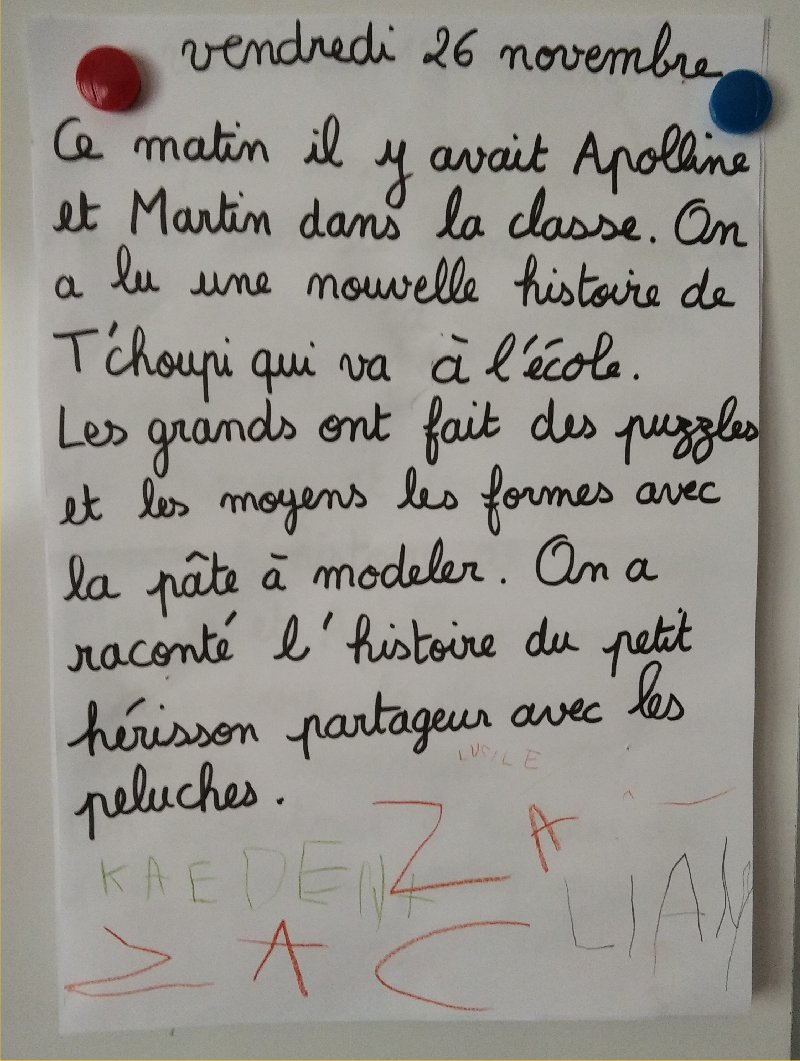 vendredi 26 novembre
Ce matin il y avait Apolline
et Martin dans la classe. On
a lu une nouvelle histoire de
T'choupi qui va à l'école.
Les grands ont fait des puzzles
et les moyens les formes avec
la pâte à modeler. On a
raconté l'histoire du petit
hérisson partageur avec les
peluches.
LUCILE
Z A
KAEDEN
LIAN
Z A C